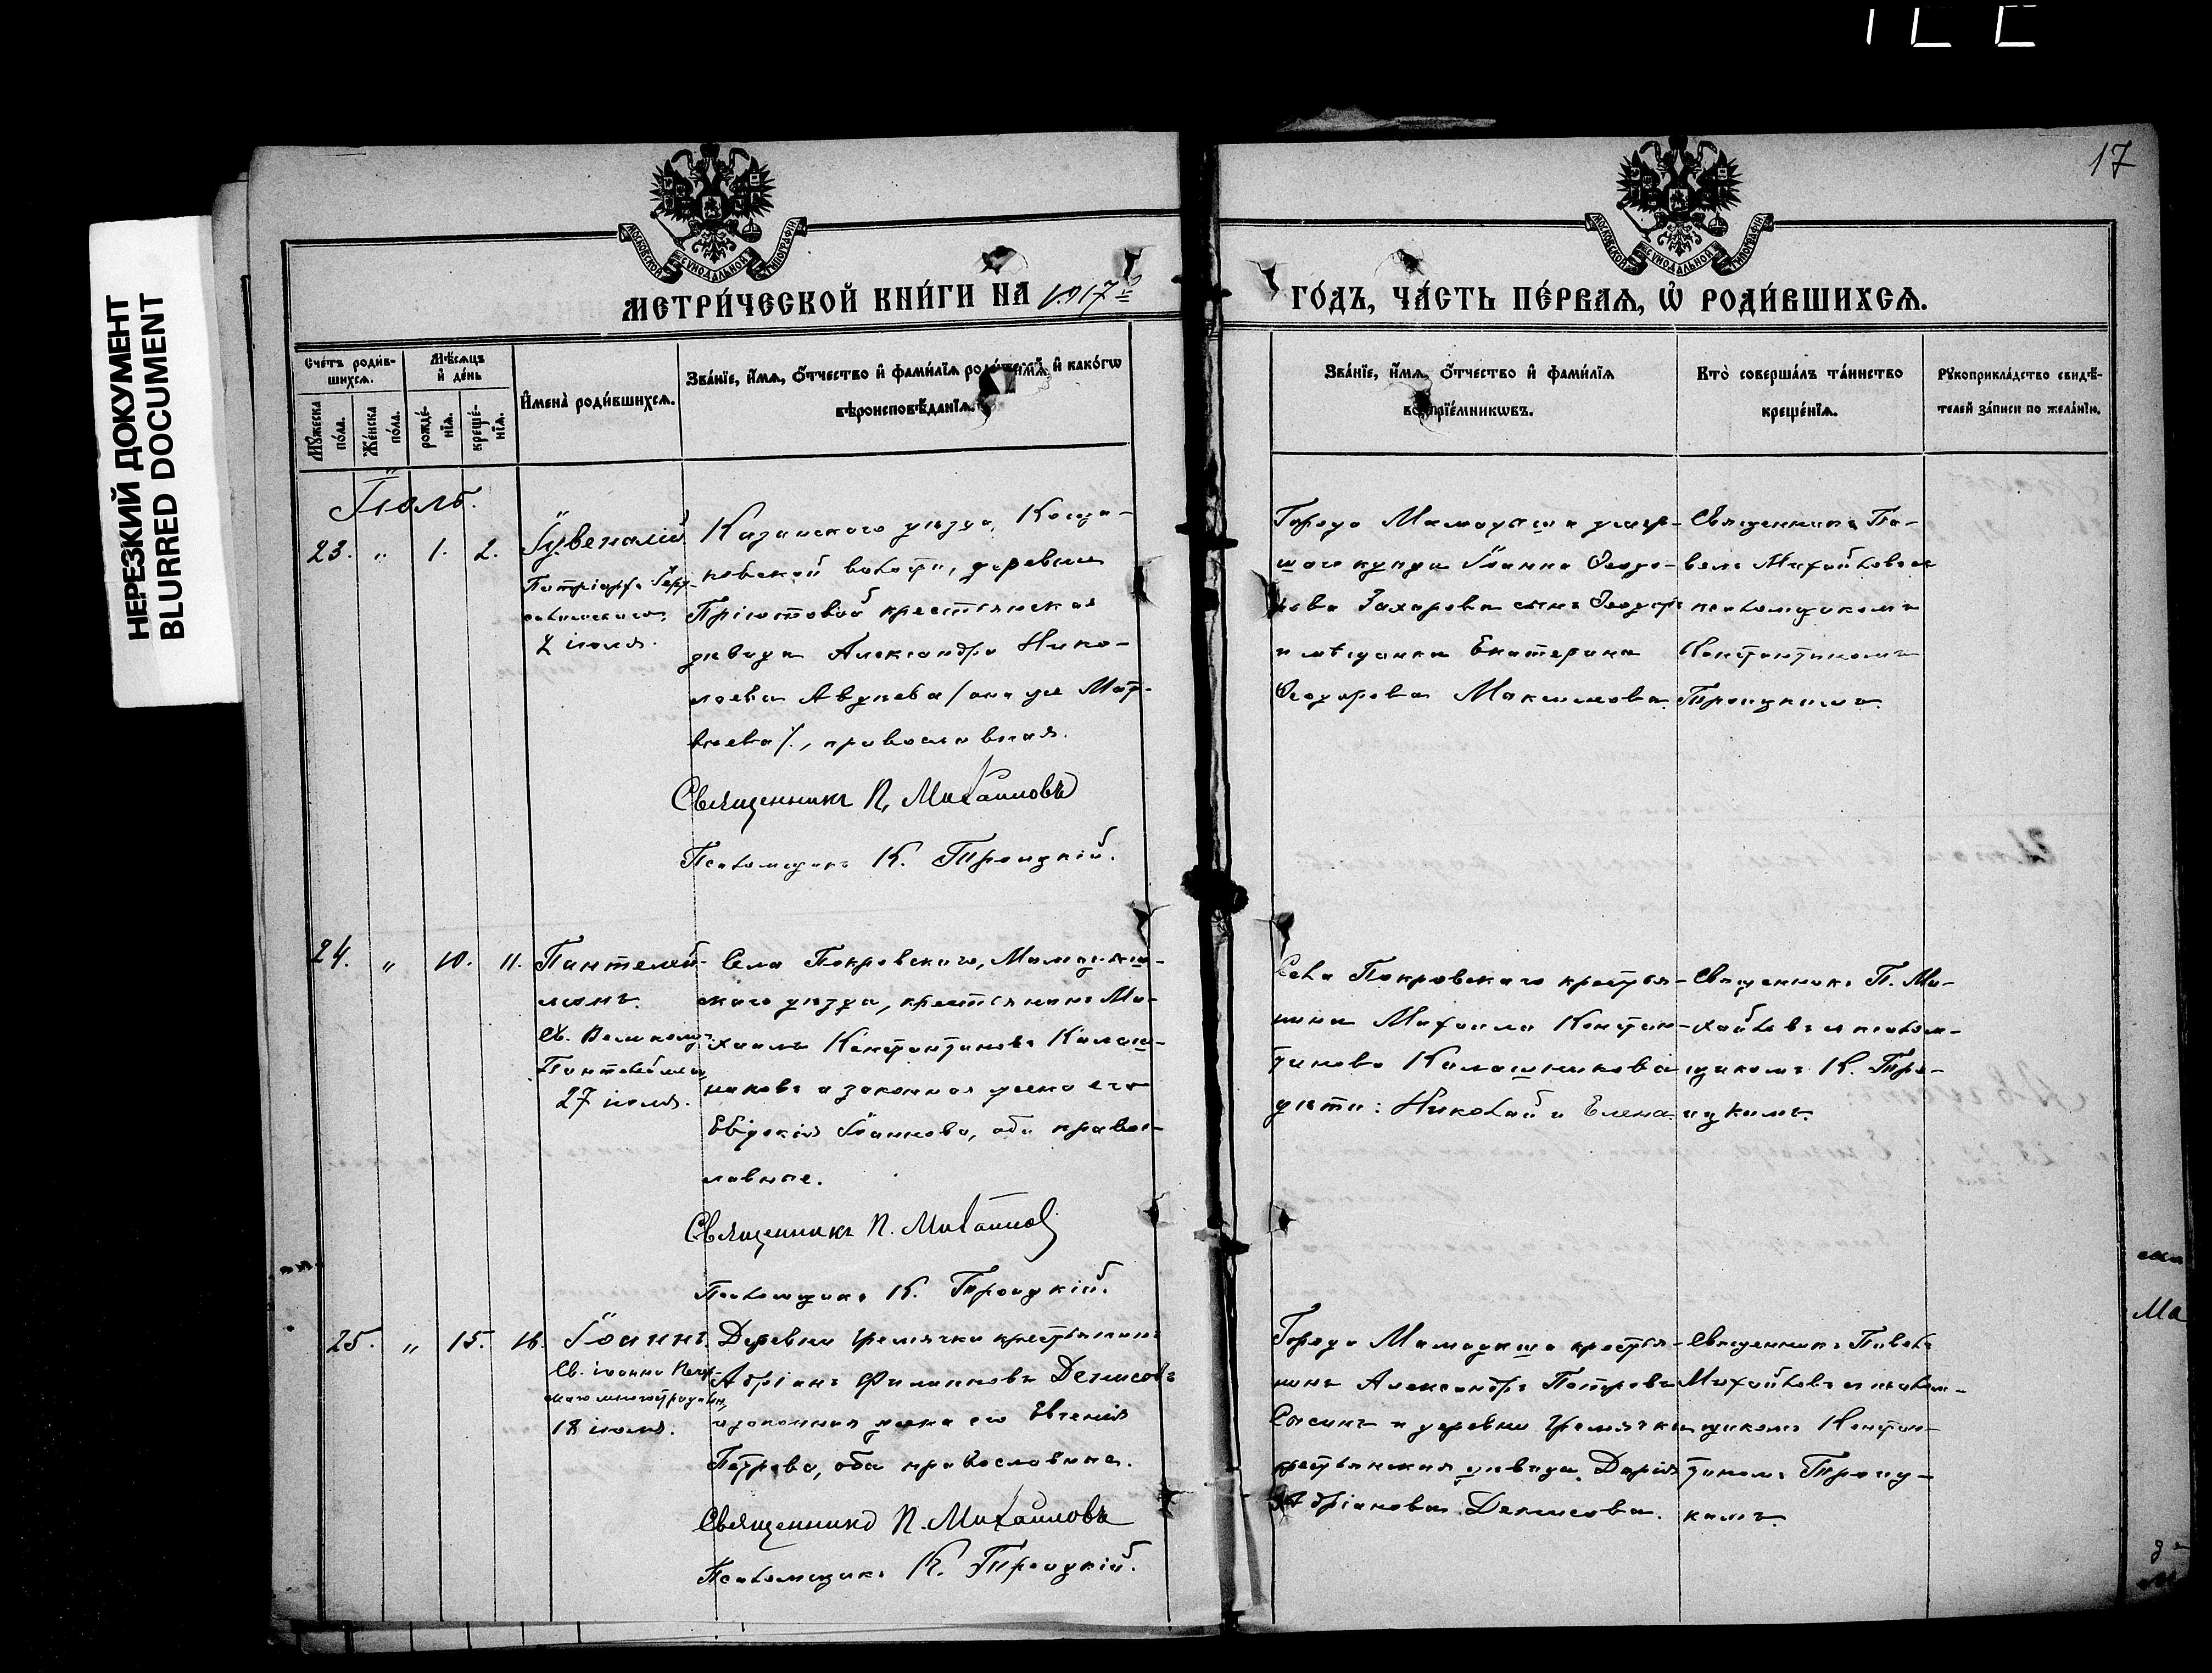 НЕРЕЗКИЙ ДОКУМЕНТ
BLURRED DOCUMENT
17
МОСКОВСКОЙ СѴНОДАЛЬНОЙ ТИПОГРАФІИ
МОСКОВСКОЙ СѴНОДАЛЬНОЙ ТИПОГРАФІИ
МЕТРИ́ЧЕСКОЙ КНИ́ГИ НА 1917
ГО́ДЪ, ЧА́СТЬ ПЕ́РВАѦ, Ѡ҆ РОДИ́ВШИХСѦ.
Сче́тъ роди́в-
шихсѧ.
Мꙋ́жеска по́ла.
Же́нска по́ла.
Мѣ́сѧцъ и҆ де́нь
рожде́-нїѧ.
креще́-нїѧ.
И҆мена̀ роди́вшихсѧ.
Зва́нїе, и҆́мѧ, ѻ҆́тчество и҆ фами́лїѧ роди́телей, и҆ како́гѡ
вѣроисповѣ́данїѧ.
Зва́нїе, и҆́мѧ, ѻ҆́тчество и҆ фами́лїѧ
воспрїе́мникѡвъ.
Кто̀ соверша́лъ та́инство
креще́нїѧ.
Рꙋкоприкла́дство свидѣ́-
телей за́писи по жела́нїю.
Іюль.
23. " 1. 2.
Ювеналій
Патріарх. Іер-
2 іюля.
Казанскаго уѣзда, Коща-
ковской волости, деревни
крестьянская
дѣвица Александра Нико-
лаева (она же Мат-
вѣева), православная.
Священникъ П. Михайловъ
Псаломщикъ К. Троицкій.
Города Мамадыша умер-
шаго купца Іоанна Ѳеодо-
рова Захарова сынъ Ѳеодоръ
и мѣщанка Екатерина
Ѳеодорова Максимова.
Священникъ Па-
велъ Михайловъ съ
псаломщикомъ
Константиномъ
Троицкимъ.
24. " 10. 11.
Пантелеи-
монъ.
Св. Великому.
Пантелеймон.
27 іюля.
Села Покровскаго, Мамадыш-
скаго уѣзда, крестьянинъ Ми-
хаилъ Константиновъ Калаш-
никовъ и законная жена его
Евдокія Іоаннова, оба правос-
лавные.
Священникъ П. Михайлов
Псаломщикъ К. Троицкій.
Села Покровскаго крестья-
нина Михаила Констан-
тинова Калашникова
дѣти: Николай и Елена.
Священникъ П. Ми-
хайловъ съ псалом-
щикомъ К. Тро-
ицкимъ.
25. " 15. 16.
Іоаннъ.
Св. Іоанна Печер-
скаго многострадальн.
18 іюля.
Деревни Гремячки крестьянинъ
Адріанъ Филипповъ Денисовъ
и законная жена его Евгенія
Петрова, оба православные.
Священникъ П. Михайловъ
Псаломщикъ К. Троицкій.
Города Мамадыша крестья-
нинъ Александръ Петровъ
Сысинъ и деревни Гремячки
крестьянская дѣвица Дарія
Адріанова Денисова.
Священникъ Павелъ
Михайловъ съ псалом-
щикомъ Констан-
тиномъ Троиц-
кимъ.
Ма